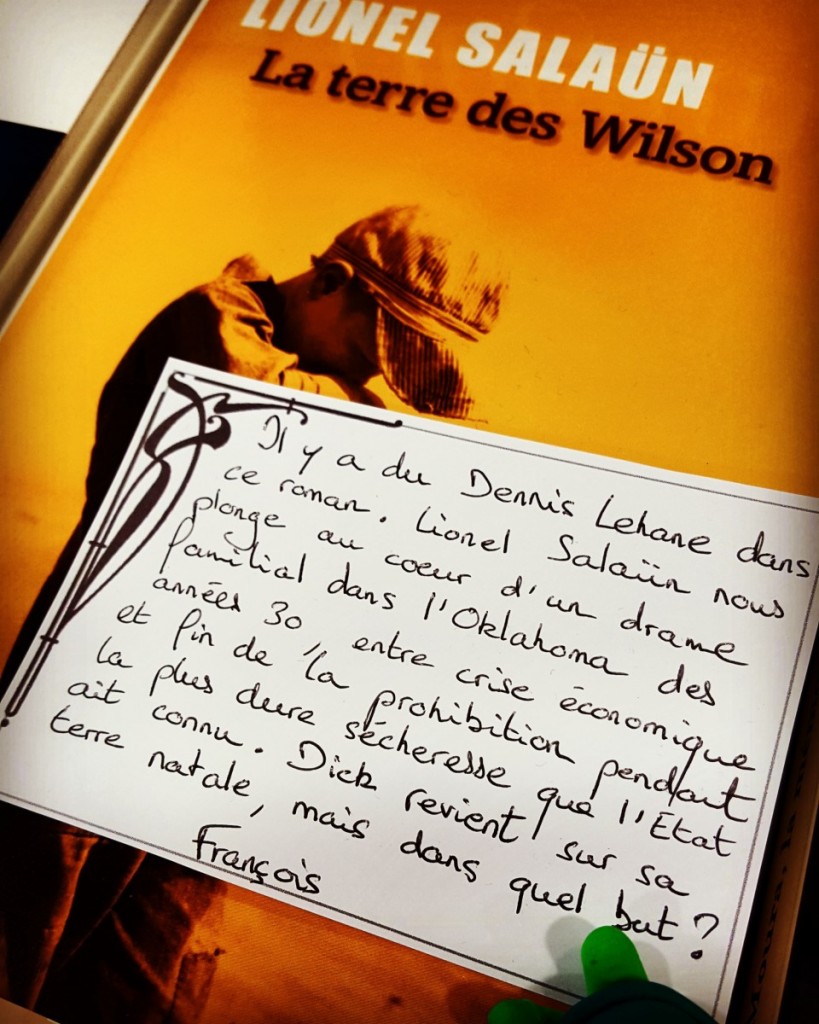 LIONEL SALAÜN
La terre des Wilson
Il y a du Dennis Lehane dans
ce roman. Lionel Salaün nous
plonge au coeur d'un drame
familial dans l'Oklahoma des
années 30, entre crise économique
et fin de la prohibition pendant
la plus dure sécheresse que l'Etat
ait connu. Dick revient sur sa
terre natale, mais dans quel but ?
François